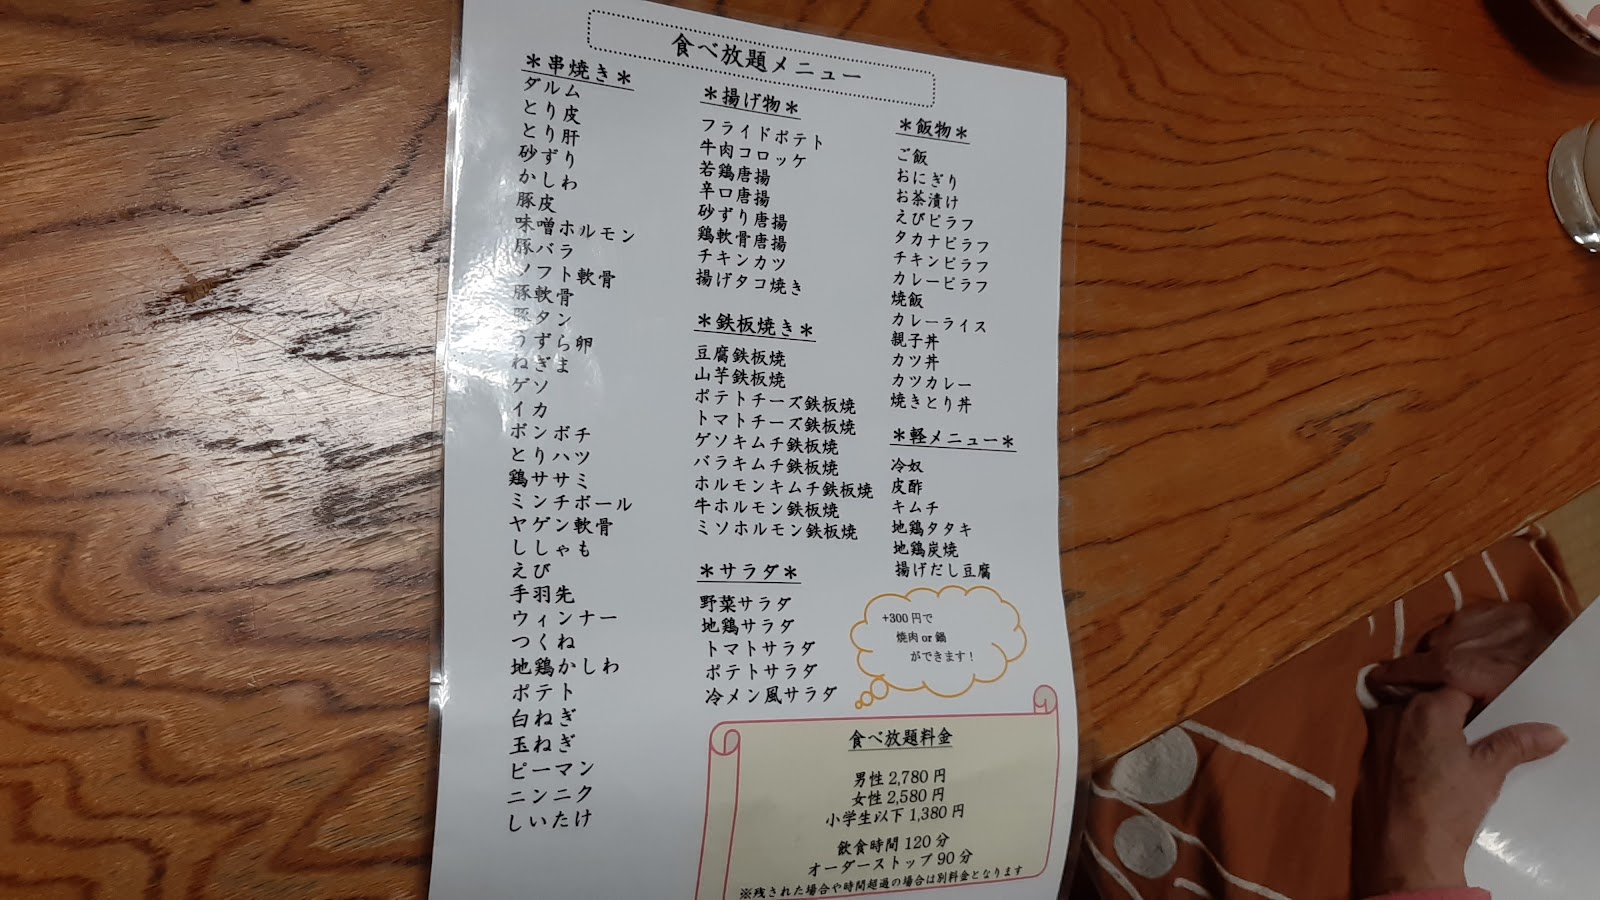 食べ放題メニュー
＊串焼き＊
ダルム
とり皮
とり肝
砂ずり
かしわ
豚皮
味噌ホルモン
豚バラ
ソフト軟骨
豚軟骨
豚タン
うずら卵
ねぎま
ゲソ
イカ
ボンボチ
とりハツ
鶏ササミ
ミンチボール
ヤゲン軟骨
ししゃも
えび
手羽先
ウィンナー
つくね
地鶏かしわ
ポテト
白ねぎ
玉ねぎ
ピーマン
ニンニク
しいたけ
＊揚げ物＊
フライドポテト
牛肉コロッケ
若鶏唐揚
辛口唐揚
砂ずり唐揚
鶏軟骨唐揚
チキンカツ
揚げタコ焼き
＊鉄板焼き＊
豆腐鉄板焼
山芋鉄板焼
ポテトチーズ鉄板焼
トマトチーズ鉄板焼
ゲソキムチ鉄板焼
バラキムチ鉄板焼
ホルモンキムチ鉄板焼
牛ホルモン鉄板焼
ミソホルモン鉄板焼
＊サラダ＊
野菜サラダ
地鶏サラダ
トマトサラダ
ポテトサラダ
冷メン風サラダ
＊飯物＊
ご飯
おにぎり
お茶漬け
えびピラフ
タカナピラフ
チキンピラフ
カレーピラフ
焼飯
カレーライス
親子丼
カツ丼
カツカレー
焼きとり丼
＊軽メニュー＊
冷奴
皮酢
キムチ
地鶏タタキ
地鶏炭焼
揚げだし豆腐
+300円で
焼肉or鍋
ができます！
食べ放題料金
男性2,780円
女性2,580円
小学生以下1,380円
飲食時間120分
オーダーストップ90分
※残された場合や時間超過の場合は別料金となります